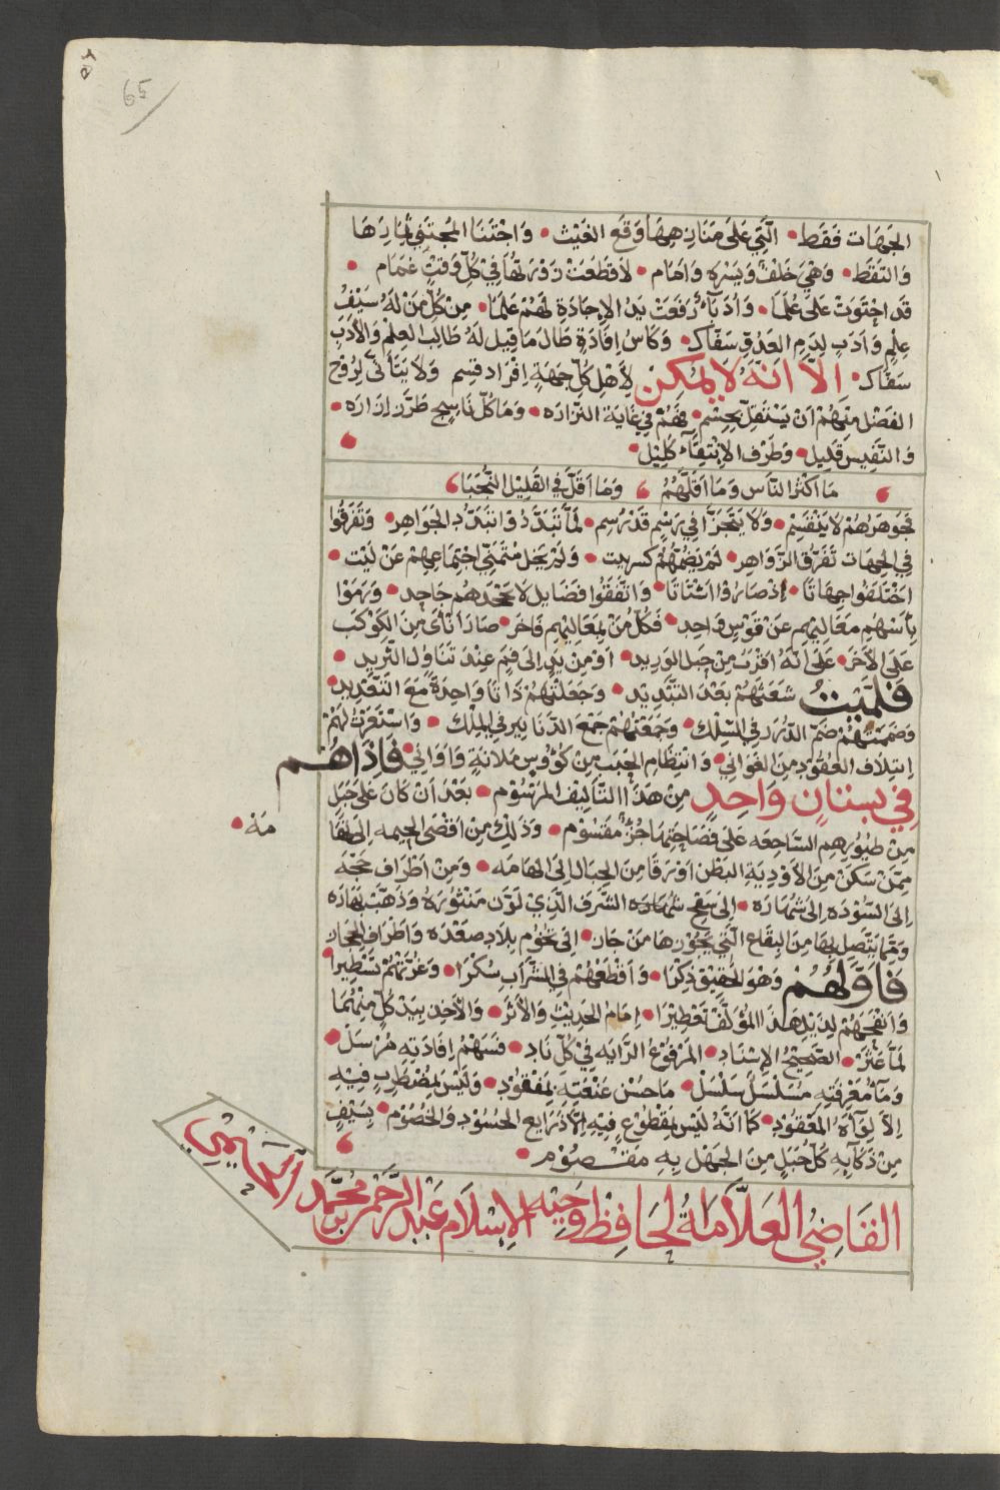 65
الجَهَات فَقَط • الَّتِي عَلَى مَنَازِهِهَا وَقَعَ الغَيْث • وَاجْتَنَا المُجْتَنِي ثِمَارَهَا
وَالتَقَط • وَهْيَ خَلْفٌ وَيَسْرَه وَامَام • لَا قَطَعَتْ زَوْرَتَهَا فِي كُلِّ وَقْتٍ غَمَام •
قَد احْتَوَتْ عَلَى عُلَمَا • وَأُدَبَآءُ رَفَعَتْ يَدُ الاِجَادَةِ لَهُمْ عَلَمَا • مِنْ كُلِّ مَنْ لَهُ سَيْفُ
عِلْمٍ وَأَدَبٍ لِدَمِ العَدُوِّ سَفَّاك • وَكَاسُ اِفَادَةٍ طَالَ مَا قِيلَ لَهُ طَالِبُ العِلْمِ وَالأَدَبِ
سَفَاك • الَّا اَنَّهُ لَا يُمْكِن لِأَهْلِ كُلِّ جِهَةٍ اِفْرَاد قِسِم وَلَا يَتَأَتَّى لِرُوْحِ
الفَضْلِ مِنْهُمْ اَنْ يَسْتَقِلَّ بِجِسْم • فَهُمْ فِي غَايَةِ النَّزَارَه • وَمَا كُلُّ نَاسِجٍ طَرَّزَ اِزَارَه •
وَالنَّفِيس قَلِيل • وَطَرْف الاِنْتِقَآء كَلِيْل •
مَا اَكْثَر النَّاسَ وَمَا اَقَلَّهُمُ وَمَا اَقَلَّ فِي القَلِيْلِ النُّجَبَا
فَجَوْهَرُهُمْ لَا يَنْقَسِم • وَلَا يَتَجَزَّا فِي رَسْمٍ قَدْ رُسِم • لَمَّا تَبَدَّدُوْا تَبَدُّدَ الجَوَاهِر • وَتَفَرَّقُوا
فِي الجِهَات تَفَرُّقَ الزَّوَاهِر • لَمْ يَضُمَّهُمْ كسر بيت • وَلَمْ يَخْلُ مُتَمَنِّي اجْتِمَاعِهِمْ عَنْ لَيْت •
اخْتَلَفُوا جِهَاتًا • اِذْ صَارُوْا اَشْتَاتًا • وَاتَّفَقُوا فَضَايِل لَا يَجْحَدهُم جَاحِد • وَرَمَوْا
بِأَسْهُمِ مَعَالِيْهِم عَنْ قَوْسٍ وَاحِد • فَكُلٌّ مِنْ بِمَعَالِيْهِم فَاخَر • صَارَ أَنْأَى مِنَ الكَوْكَب
عَلَى الآخَر • عَلَى اَنَّهُ اَقْرَبُ مِنْ حَبل الوَرِيد • اَوْ مِنْ يَدٍ اِلَى فَمٍ عِنْدَ تَنَاوُلِ الثَّرِيد •
فَلَمَّيْتُ شَعَثَهُمْ بَعْدَ التَّبْدِيْد • وَجَعَلْتُهُمْ ذَاتًا وَاحِدَةً مَعَ التَّعْدِيد •
وَضَمَمْتُهُمْ ضَمّ الدُّرَر فِي السِّلْك • وَجَمَعْتُهُمْ جَمْعَ الدَّنَانِير فِي المِلْك • وَاسْتَعَرْتُ لَهُمْ
اِيْتِلَاف العُقُوْدِ مِنَ الغَوَانِي • وَانْتِظَام الحَبَب مِنْ كَوْؤُس مَلَانَةٍ وَاَوَانِي • فَاِذَا هُم
فِي بُسْتَانٍ وَاحِدٍ مِنْ هَذَا التَّالِيفِ المَرْسُوْم • بَعْدَ اَنْ كَانَ عَلَى جَبَل
مِنْ طيُوْرِهِم السَّاجِعَه عَلَى فَصَاحَتِهَا جُزْءٌ مَقْسُوْم • وَذَلِكَ مِنْ اَقْصَى الحيمه اِلَى تِهَا
مَهْ •
مِمَّنْ سَكَنَ مِنَ الأَوْدِيَةِ البَطْن اَوْ رَقَا مِنَ الجِبَال اِلَى الهَامَه • وَمِنْ اَطْرَاف حَجَّهَ
اِلَى السُّوْدَه اِلَى شُهَارَه • اِلَى سَفْحِ شُهَارَه الشَّرَف الَّذِيْ لَوَّن مَنْثُوْرَهُ وَذَهَّبَ بَهَارَه
وَمَا يَتَّصِل بِهَا مِنَ البِقَاع الَّتِي يَجُوْزهَا مَنْ حَاز • اِلَى تُخُوْمِ بِلَادِ صَعْدَه وَاَطْرَافِ الحِجَاز •
فَاَوَّلُهُمْ وَهْوَ الحَقِيْق ذِكْرًا • وَاَفْظَعُهُمْ فِي الشَّرَابِ سُكْرًا • وَعَزَّتُهُمْ تَسْطِيرا
وَاَنْفَحَهُمْ لِذَيْلِ هَذَا المُؤَلَّف تَعْطِيْرًا • اِمَامُ الحَدِيْثِ وَالأَثَر • وَالآخِذ بِيَد كُلٍّ مِنْهُمَا
لَمَّا عَثَر • الصَّحِيْحُ الاِسْنَاد • المَرْفُوْعُ الرَّايَه فِيْ كُلِّ نَاد • فَسَهْمُ اِفَادَتِهِ مُرْسَل •
وَمَآءُ مَعْرِفَتِهِ مُسَلْسَلٌ سَلْسَل • مَا حُسْن عَنْعَنَتِهِ بِمَفْقُوْد • وَلَيْسَ بِمُضْطَرِبٍ فِيْهِ
اِلَّا لِوَآءَهُ المَعْقُوْدِ • كَمَا اَنَّهُ لَيْسَ بِمَقْطُوْعٍ فِيْهِ اِلَّا ذَرَايِع الحَسُوْدِ وَالخُصُوْم • بِسَيْفٍ
مِنْ ذَكَآئِهِ كُلّ حَبْلٍ مِنَ الجَهْلِ بِهِ مَفْصُوْم •
القَاضِي العَلَّامَةُ الحَافِظ وَجِيْه الاِسْلَام عَبْد الرَّحْمَن بْن مُحَمَّد الحَيْمِي